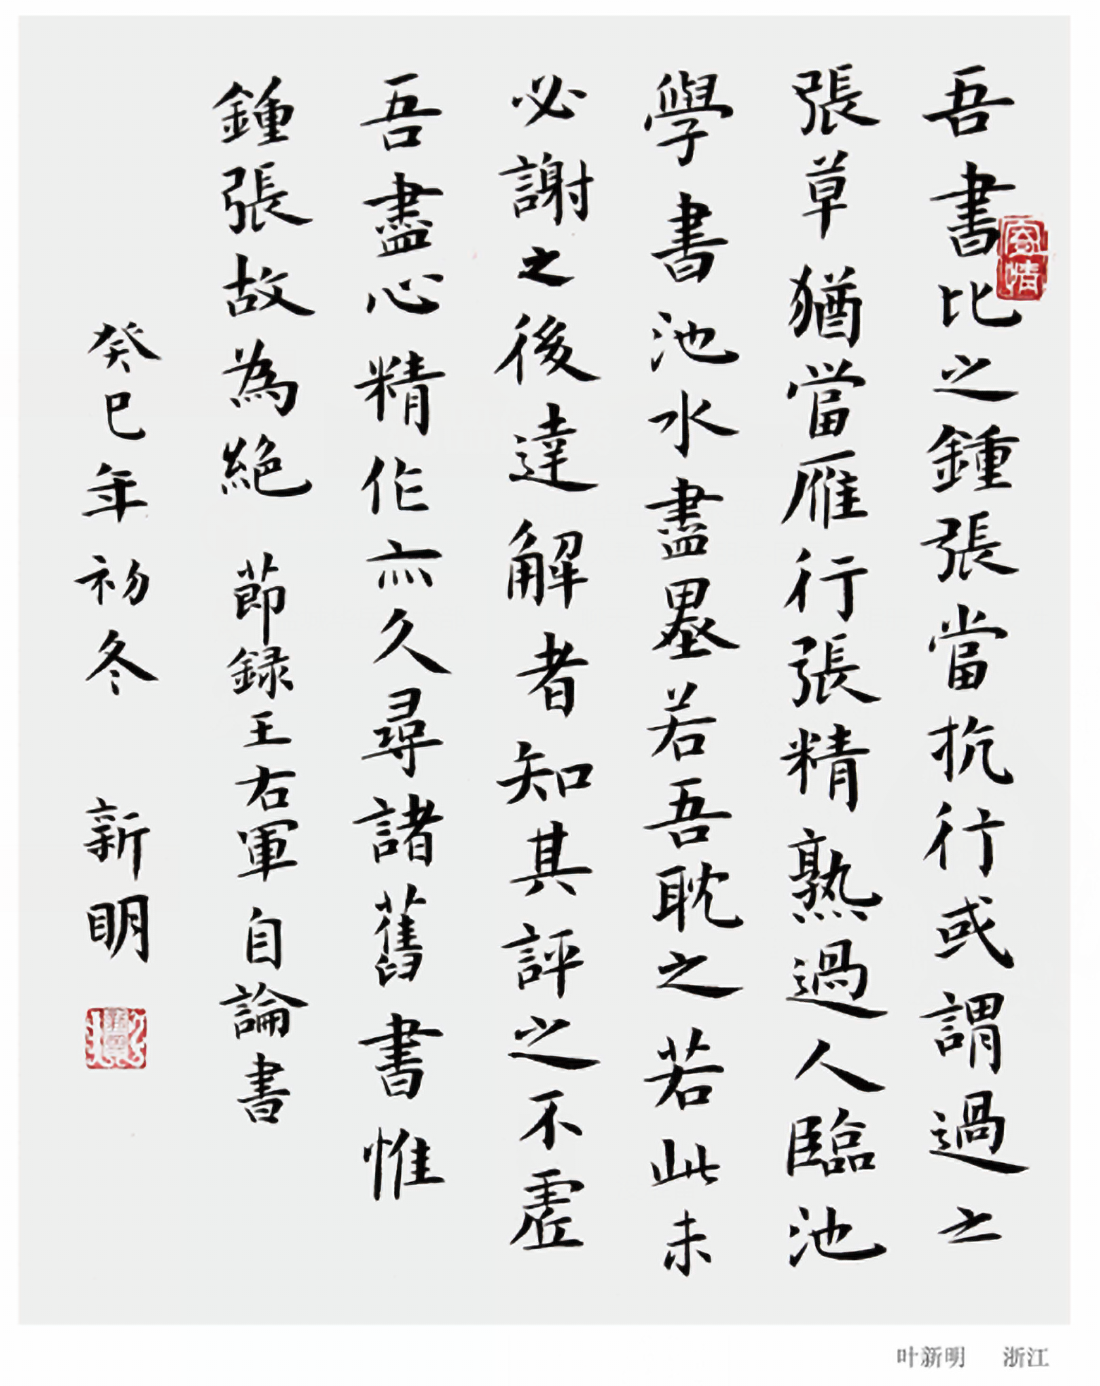 吾書比之鍾張當抗行或謂過之
張草猶當雁行張精熟過人臨池
學書池水盡墨若吾耽之若此未
必謝之後達解者知其評之不虛
吾盡心精作亦久尋諸舊書惟
鍾張故為絕 節録王右軍自論書
癸巳年初冬 新明
叶新明 浙江